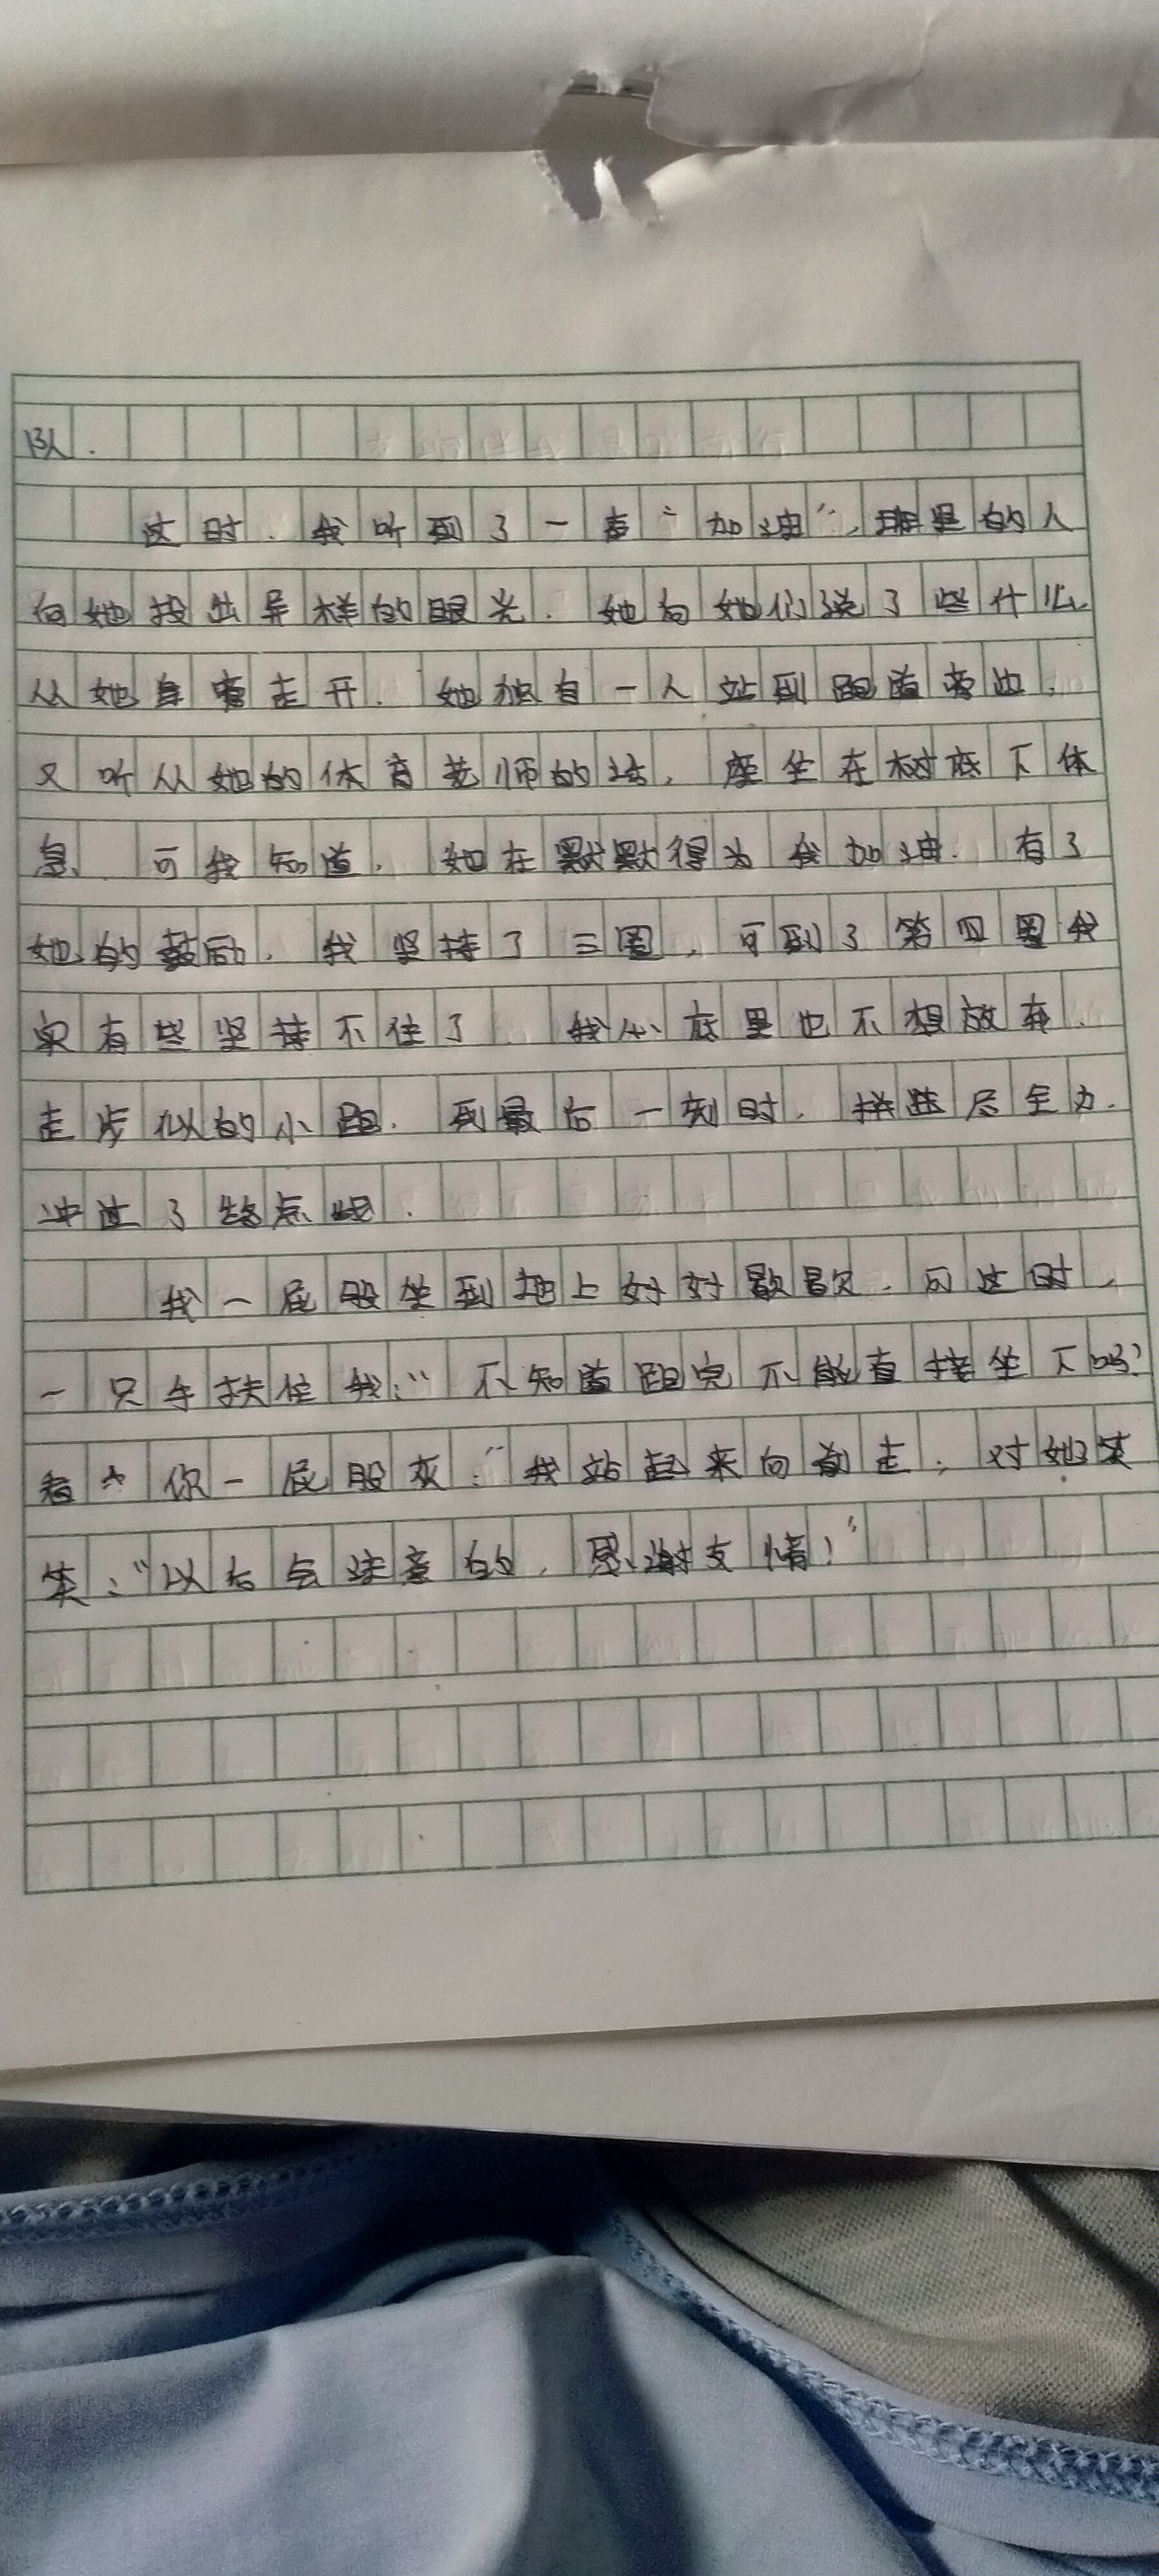 队.
这时.我听到了一声“加油”,班里的人
向她投出异样的眼光.她向她们说了些什么
从她身旁走开.她独自一人站到跑道旁边.
又听从她的体育老师的话,座坐在树底下休
息、可我知道,她在默默得为我加油.有了
她的鼓励,我坚持了三圈,可到了第四圈我
实有些坚持不住了 我心底里也不想放弃.
走步似的小跑.到最后一刻时.拼进尽全力.
冲过了终点线.
我一屁股坐到地上好好歇歇.可这时,
一只手扶住我:“不知道跑完不能直接坐下吗?
看你一屁股灰.”我站起来向前走,对她笑
笑:“以后会注意的,感谢友情!”